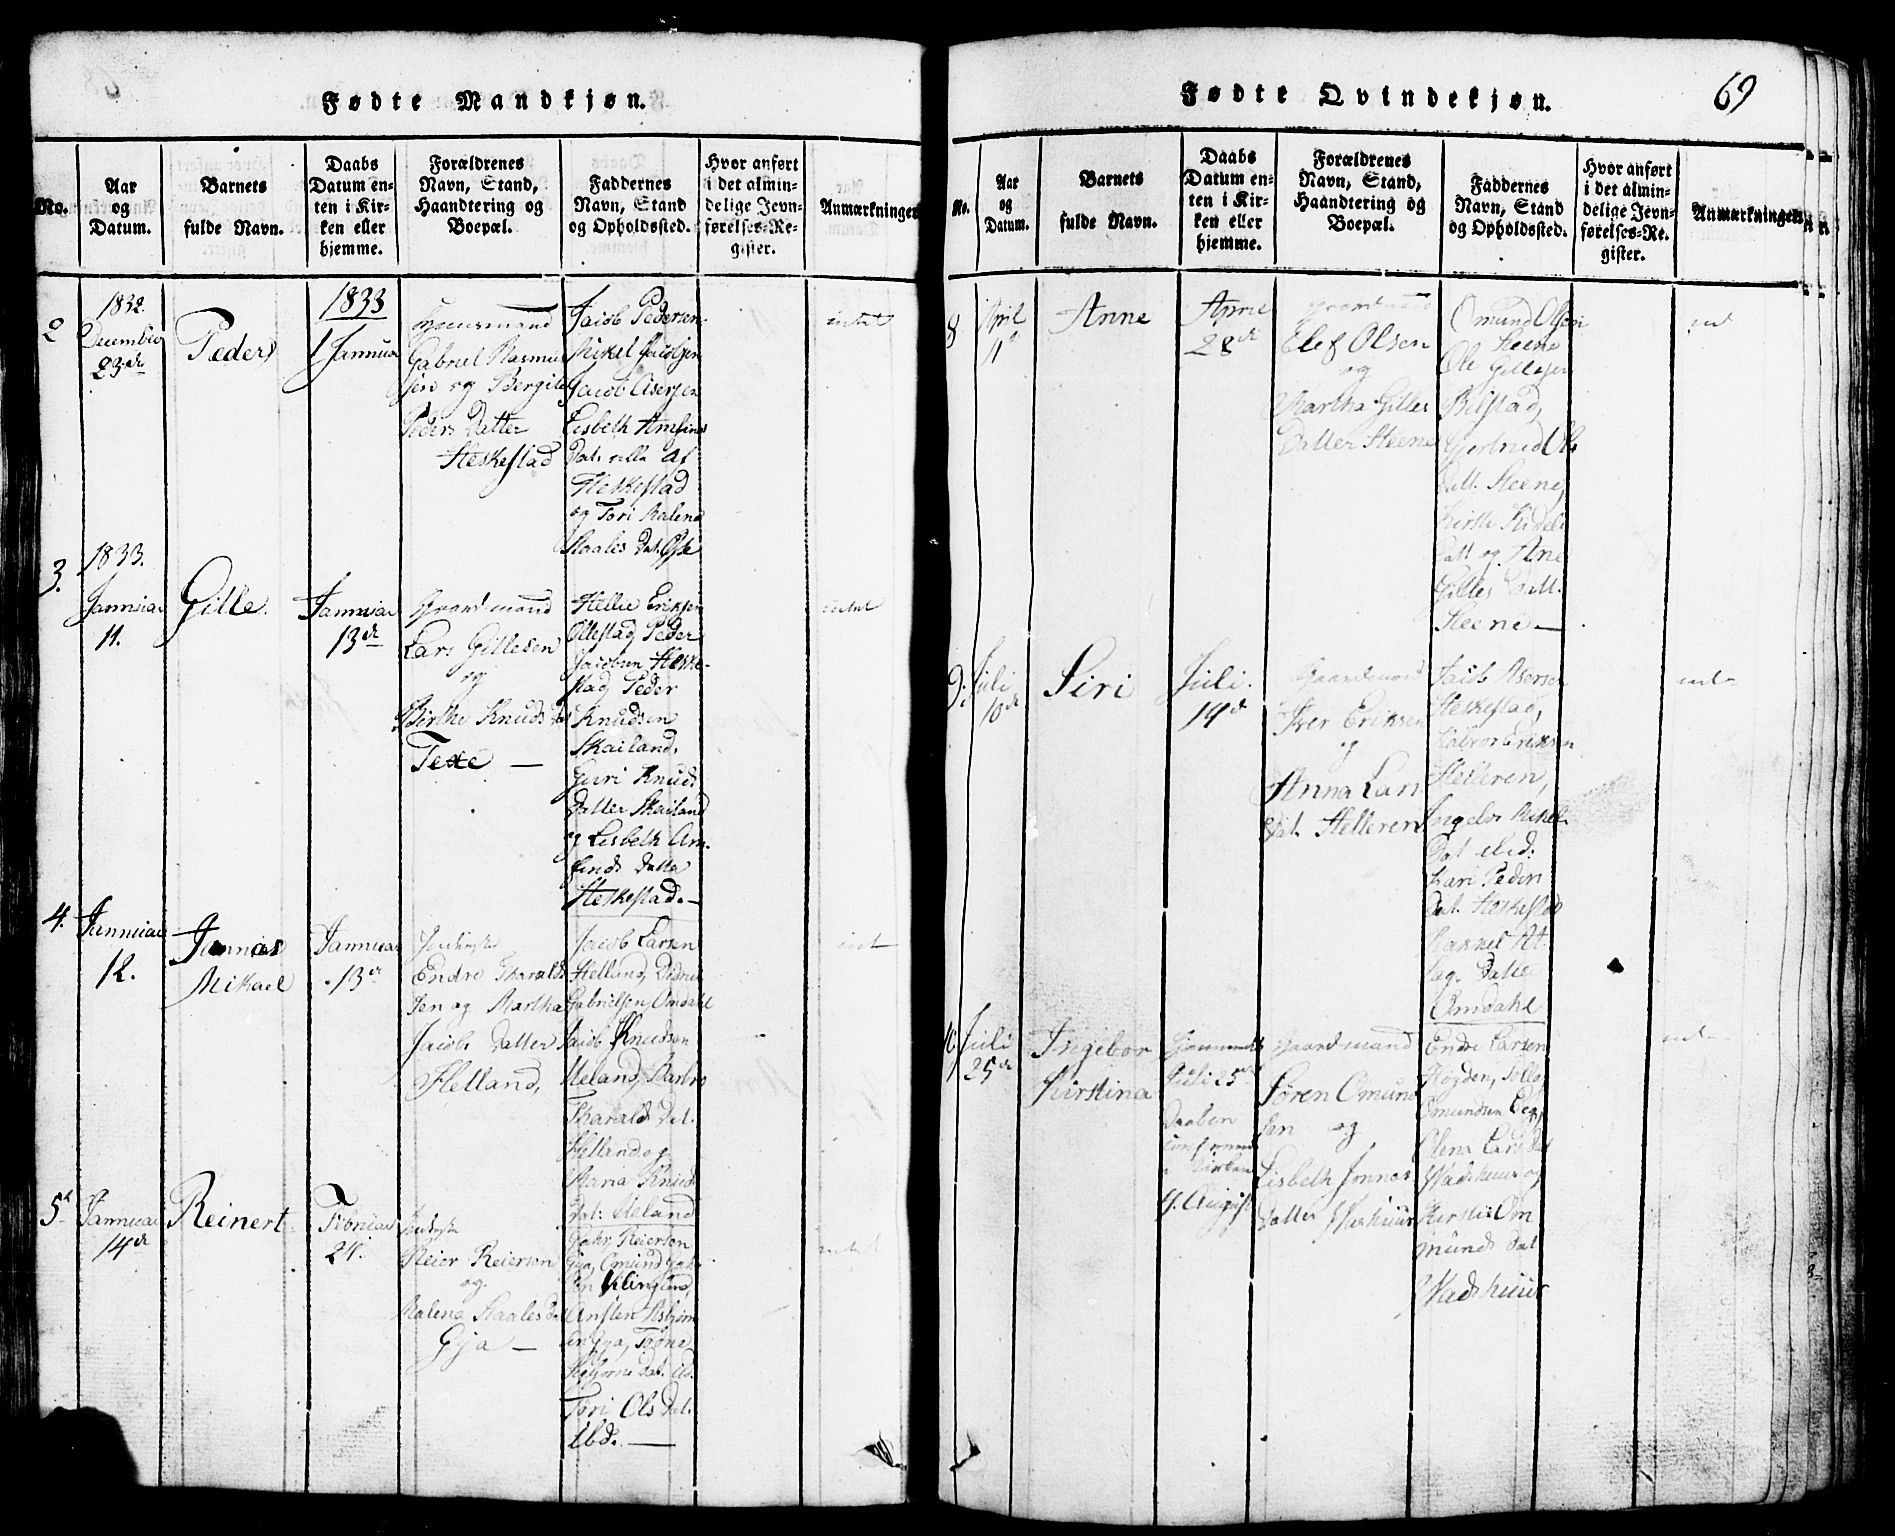 Fødte Mandkjøn.
No.
Aar
og
Datum.
Barnets
fulde Navn.
Daabs
Datum en-
ten i Kir-
ken eller
hjemme.
Forældrenes
Navn, Stand,
Haandtering og
Boepæl.
Faddernes
Navn, Stand
og Opholdssted.
Hvor anført
i det almin-
delige Jevn-
førelses-Re-
gister.
Anmærkninger
2
1832.
December
23de
Peder
1833
1 Januar
Huusmand
Gabriel Rasmus
sen og Bergite
Peders Datter
Heskestad
Jacob Pedersen
Mikel Jacobsen
Jacob Asersen
Lisbeth Amfinds
Dat. alle af
Heskestad
og Tori Malena
Staales Dat.
intet
3.
1833.
Januar
11.
Gille.
Januar
13de
Gaardmand
Lars Gillesen
og
Birthe Knuds Dat
Texe —
Hellie Eriksen
Ollestad, Peder
Jacobsen Heske-
stad, Peder
Knudsen
Skailand,
Guri Knuds
Datter Skailand
og Lisbeth Am-
finds Datter
Heskestad. —
intet
4.
Januar
12.
Jonnas
Mikael
Januar
13de
Endre Tharalds
sen og Martha
Jacobs Datter
Helland,
Jacob Larsen
Helland, Didrik
Gabrielsen Omdahl
Jacob Knudsen
Meland, Barbro
Tharalds Dat.
Helland og
Maria Knuds
Dat. Meland
intet
5
Januar
14de
Reinert
Februar
24.
Reier Reiersen
og
Malena Staales Dat
Gya —
Reiersen
Gya, Omund
sen Klungland,
Ansten Asbjørn
sen Gya, Tone
Asbjørns Dat. ibd.
Tori Ols Dat.
ibd. —
intet
Fødte Qvindekjøn.
69
No.
Aar
og
Datum.
Barnets
fulde Navn.
Daabs
Datum en-
ten i Kir-
ken eller
hjemme.
Forældrenes
Navn, Stand,
Haandtering og
Boepæl.
Faddernes
Navn, Stand
og Opholdssted.
Hvor anført
i det almin-
delige Jevn-
førelses-Re-
gister.
Anmærkninger.
8
April
11
Anne
April
28de
Gaardmand
Elef Olsen
og
Martha Gilles
Datter Steene
Omund Olsen
Steene
Ole Gillesen
Bilstad,
Gjertrud Ols
Datt. Steene,
Kirsti
Datt og Ane
Gilles Datt.
Steene —
int
9.
Juli
10de
Siri
Juli.
14de
Gaardmand
Iver Eriksen
og
Anna Lars
Dat. Helleren
Jacob Asersen
Heskestad,
Halvor Eriksen
Helleren,
Ingebor Mikels
Dat ibid.
Kari Peders
Dat. Heskestad
Rakkel At
lags Datter
Omdahl
int
10
Juli
25de
Ingebor
Kirstina
Hjemmedøbt
Juli 25de
Daaben
confirmeret
i Kirken
4. August
Gaardmand
Søren Omund
sen og
Lisbeth Jonnas
Datter Wadshuus
Endre Larsen
Høgden, Tollo
Omundsen Eeg,
Elena Lars Dat
Wadshuus og
Kirstie Om
munds Dat
Wadshuus
int